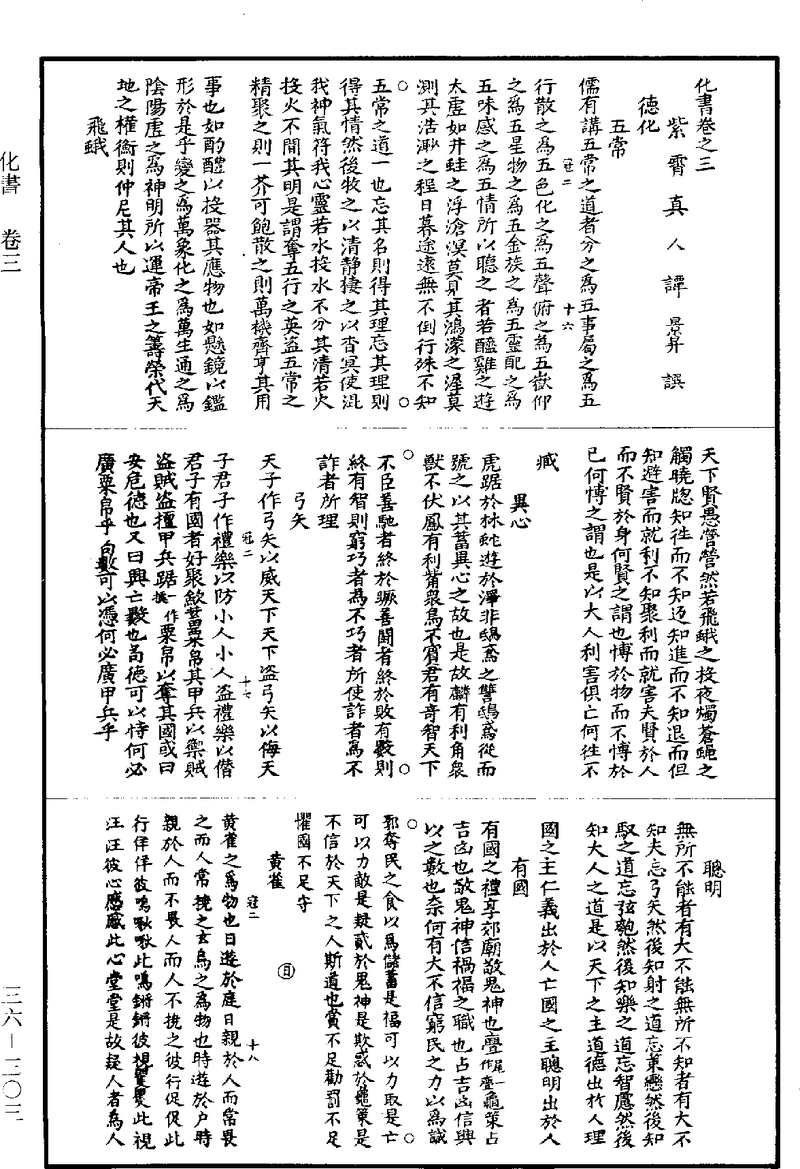 化書卷之三
紫霄真人譚景昇譔
德化
五常
儒有講五常之道者分之為五事屬之為五
冠二 十六
行散之為五色化之為五聲俯之為五嶽仰
之為五星物之為五金族之為五靈配之為
五味感之為五情所以聽之者若醯雞之遊
太虛如井蛙之浮滄溟莫見其鴻濛之涯莫
測其浩渺之程日暮途遠無不倒行殊不知
五常之道一也忘其名則得其理忘其理則
得其情然後牧之以清静棲之以杳冥使混
我神氣符我心靈若水投水不分其清若火
投火不間其明是謂奪五行之英盜五常之
精聚之則一芥可飽散之則萬機齊亨其用
事也如酌醴以投器其應物也如懸鏡以鑑
形於是乎變之為萬象化之為萬生通之為
陰陽虛之為神明所以運帝王之籌策代天
地之權衡則仲尼其人也
飛蛾
天下賢愚營營然若飛蛾之投夜燭蒼蠅之
觸曉牕知往而不知返知進而不知退而但
知避害而就利不知聚利而就害夫賢於人
而不賢於身何賢之謂也博於物而不博於
己何博之謂也是以大人利害俱亡何往不
臧
異心
虎踞於林蛇遊於澤非鴟鳶之讐鴟鳶從而
號之以其蓄異心之故也是故麟有利角衆
獸不伏鳳有利觜衆鳥不賓君有奇智天下
不臣善馳者終於蹶善鬪者終於敗有數則
終有智則窮巧者為不巧者所使詐者為不
詐者所理
弓矢
天子作弓矢以威天下天下盜弓矢以侮天
冠二 十七
子君子作禮樂以防小人小人盜禮樂以僭
君子有國者好聚歛蓄粟帛具甲兵以禦賊
盜賊盜擅甲兵踞一作據粟帛以奪其國或曰
安危德也又曰興亡數也苟德可以恃何必
廣粟帛乎苟數可以憑何必廣甲兵乎
聰明
無所不能者有大不能無所不知者有大不
知夫忘弓矢然後知射之道忘策轡然後知
馭之道忘弦匏然後知樂之道忘智慮然後
知大人之道是以天下之主道德出於人理
國之主仁義出於人亡國之主聰明出於人
有國
有國之禮享郊廟敬鬼神也龜策占
吉凶也敬鬼神信禍福之職也占吉凶信興
亡之數也奈何有大不信窮民之力以為城
郭奪民之食以為儲蓄是福可以力取是亡
可以力敵是疑貳於鬼神是欺惑於龜策是
不信於天下之人斯道也賞不足勸罰不足
懼國不足守
黃雀
黃雀之為物也日遊於庭日親於人而常畏
冠二 十八
之而人常撓之玄鳥之為物也時遊於户時
親於人而不畏人而人不撓之彼行促促此
行佯佯彼鳴啾啾此鳴鏘鏘彼視矍矍此視
汪汪彼心慼慼此心堂堂是故疑人者為人
化書 卷三
三六－三〇二